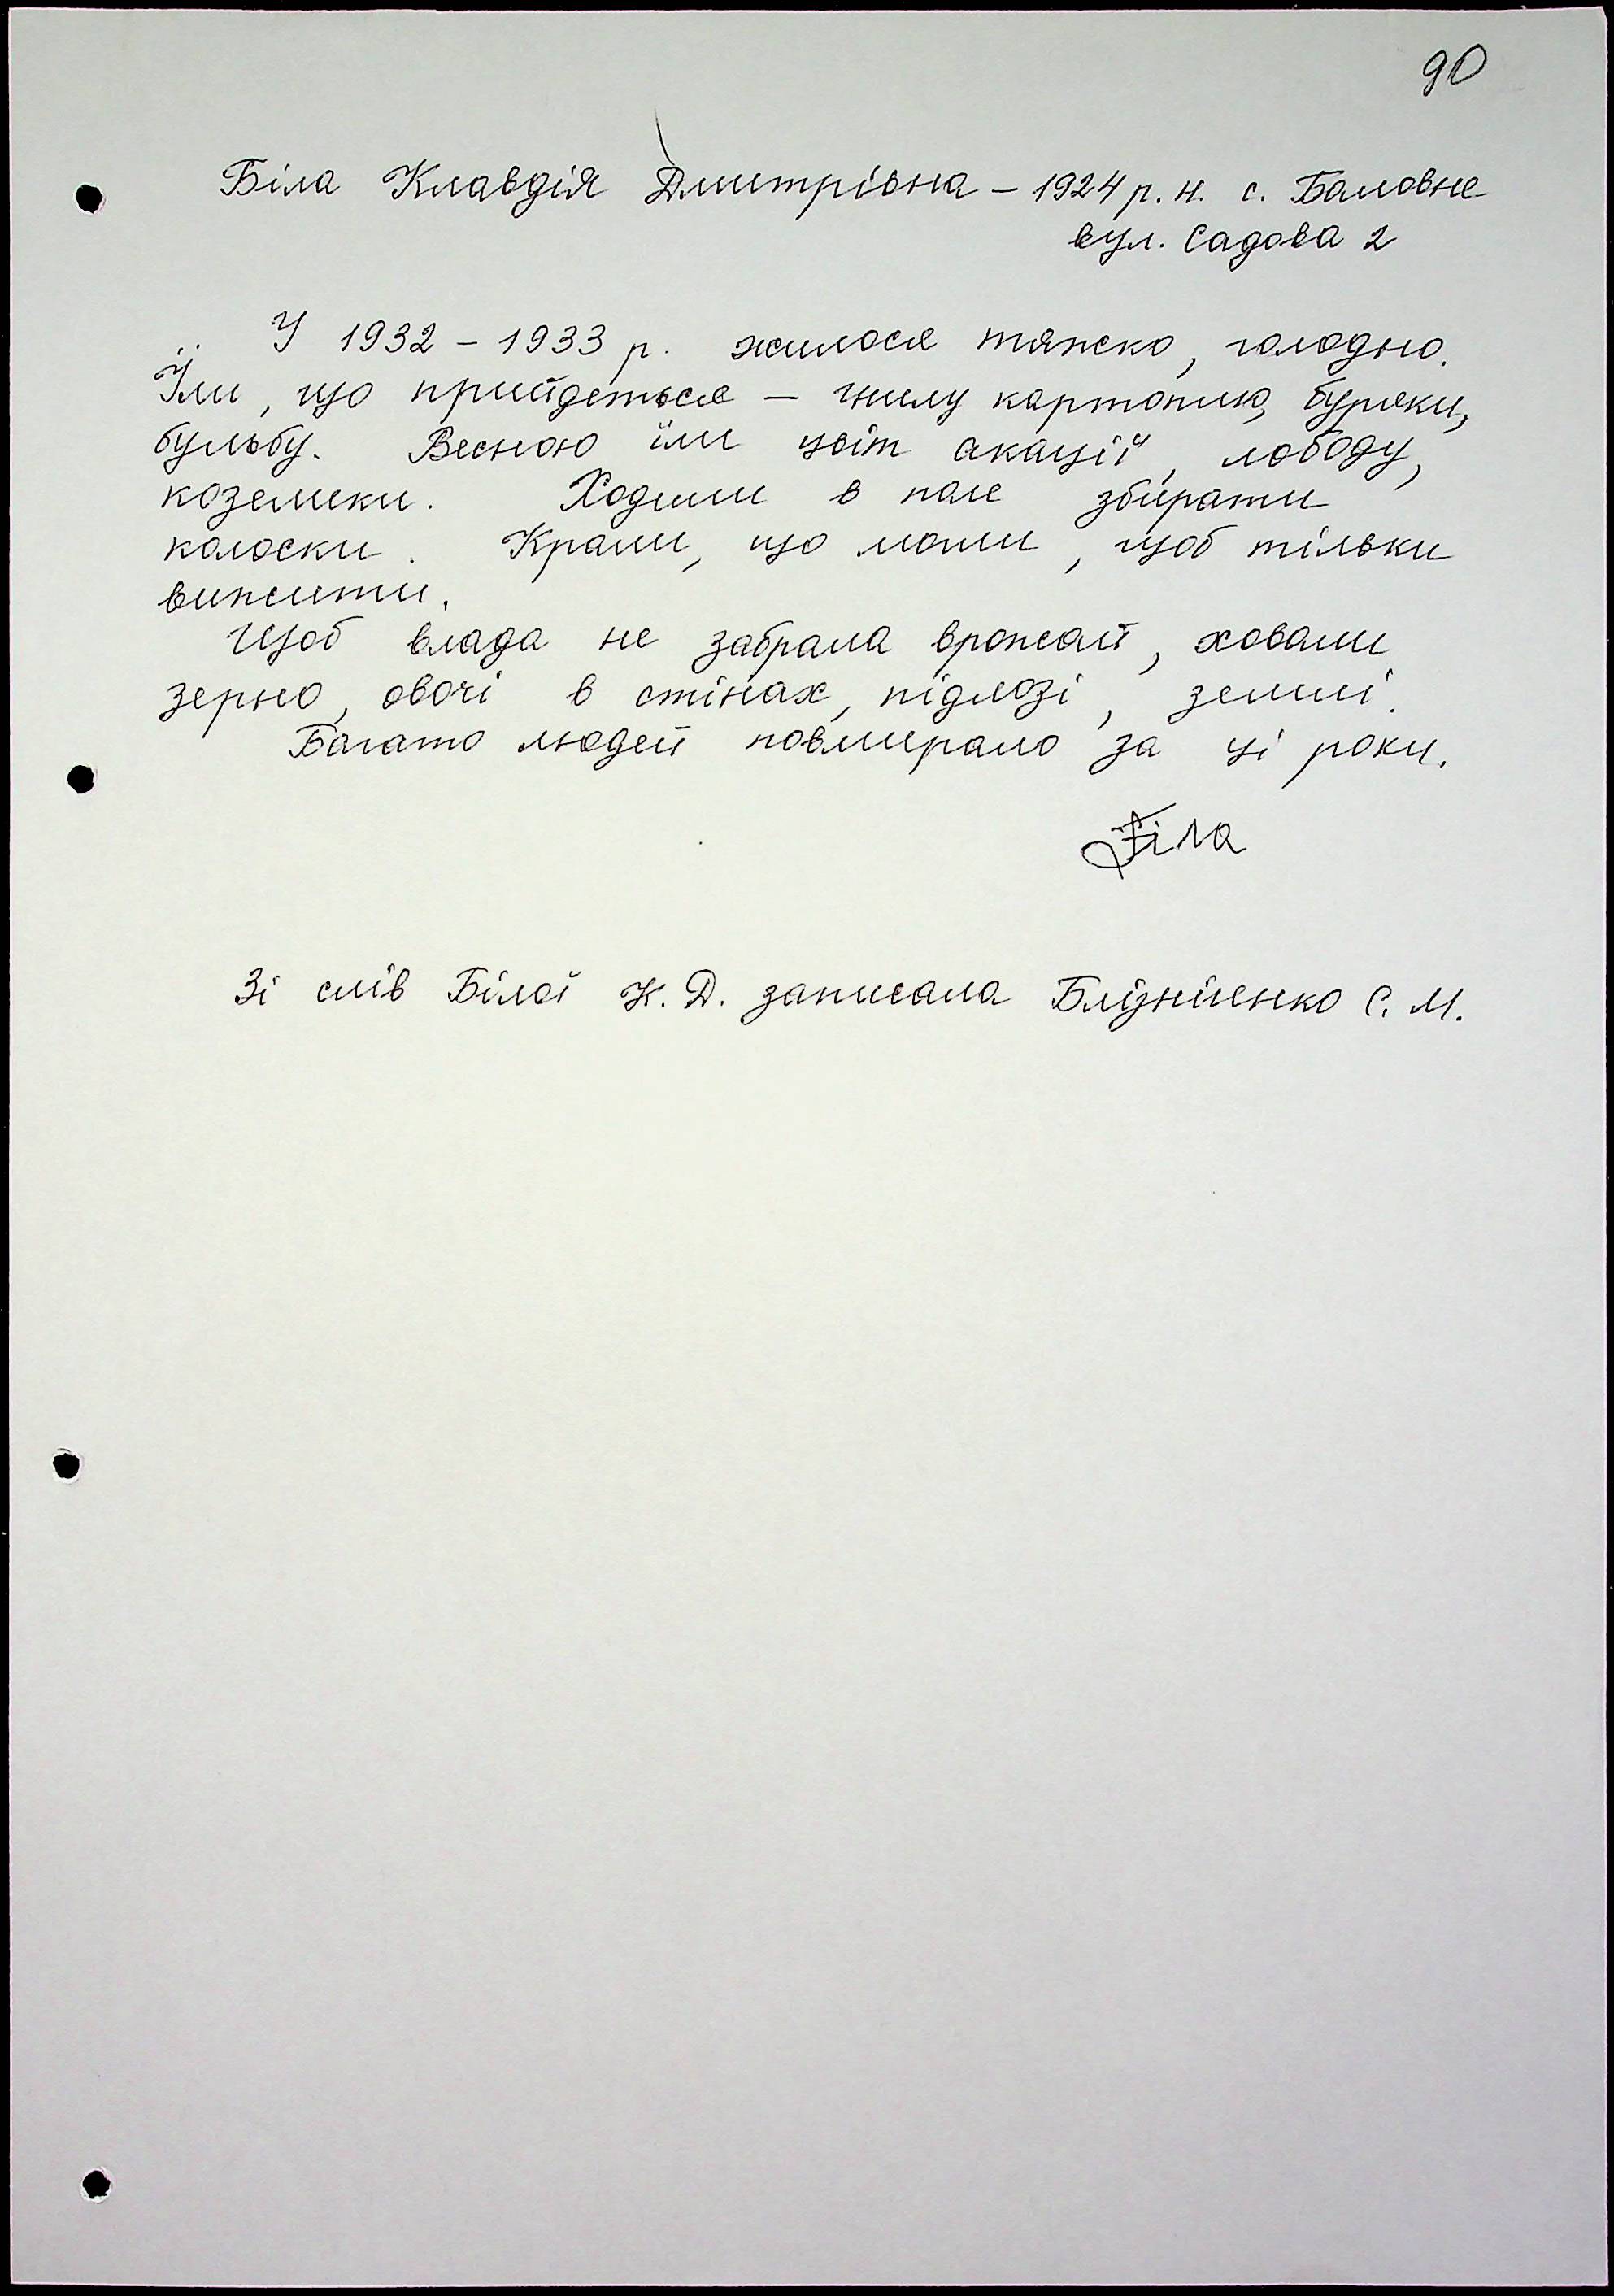 90
Біла Клавдія Дмитрівна – 1924 р. н. с. Баловне
вул. Садова 2
У 1932 – 1933 р. жилося тяжко, голодно.
Їли, що прийдеться – гнилу картоплю, буряки,
бульбу. Весною їли цвіт акації, лободу,
козелики. Ходили в поле збирати
колоски. Крали, що могли, щоб тільки
вижити.
Щоб влада не забрала врожай, ховали
зерно, овочі в стінах, підлозі, землі.
Багато людей повмирало за ці роки.
Біла
Зі слів Білої К. Д. записала Блізніченко С. М.